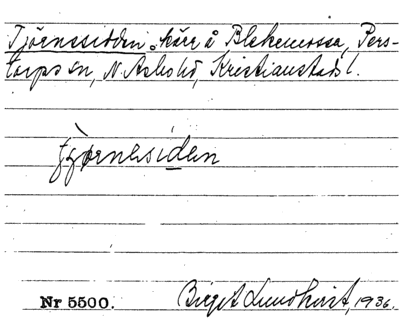 Tjörnssidden, kärr å Blekemossa, Pers-
torps sn, N. Åsbo hd, Kristianstads l.
tjørnesiden
Nr 5500. Birgit Lundkvist, 1936.